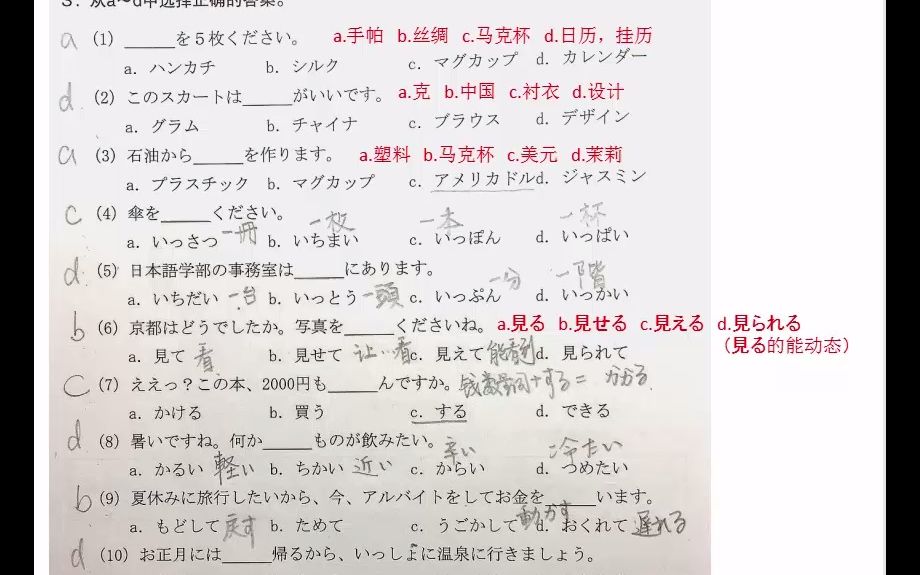 3. 从a～d中选择正确的答案。
a (1) ______を５枚ください。 a.手帕 b.丝绸 c.马克杯 d.日历，挂历
a. ハンカチ b. シルク c. マグカップ d. カレンダー
d (2) このスカートは______がいいです。 a.克 b.中国 c.衬衣 d.设计
a. グラム b. チャイナ c. ブラウス d. デザイン
a (3) 石油から______を作ります。 a.塑料 b.马克杯 c.美元 d.茉莉
a. プラスチック b. マグカップ c. アメリカドル d. ジャスミン
c (4) 傘を______ください。
a. いっさつ 一冊 b. いちまい 一枚 c. いっぽん 一本 d. いっぱい 一杯
d (5) 日本語学部の事務室は______にあります。
a. いちだい 一台 b. いっとう 一頭 c. いっぷん 一分 d. いっかい 一階
b (6) 京都はどうでしたか。写真を______くださいね。 a.見る b.見せる c.見える d.見られる
（見る的能动态）
a. 見て 看 b. 見せて 让…看 c. 見えて 能看到 d. 見られて
C (7) ええっ？この本、2000円も______んですか。 钱数量词+する= かかる
a. かける b. 買う c. する d. できる
d (8) 暑いですね。何か______ものが飲みたい。
a. かるい 軽い b. ちかい 近い c. からい 辛い d. つめたい 冷たい
b (9) 夏休みに旅行したいから、今、アルバイトをしてお金を______います。
a. もどして 戻す b. ためて c. うごかして 動かす d. おくれて 遅れる
d (10) お正月には______帰るから、いっしょに温泉に行きましょう。